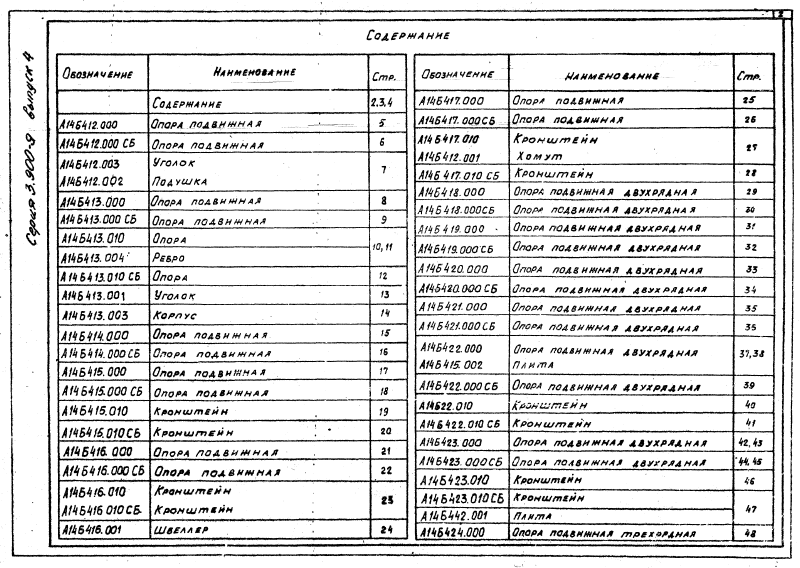 2
Содержание
Серия 3.900-9 выпуск 4
Обозначение Наименование Стр.
Содержание 2,3,4
А14Б412.000 Опора подвижная 5
А14Б412.000 СБ Опора подвижная 6
А14Б412.003 Уголок 7
А14Б412.002 Подушка
А14Б413.000 Опора подвижная 8
А14Б413.000 СБ Опора подвижная 9
А14Б413.010 Опора 10,11
А14Б413.004 Ребро
А14Б413.010 СБ Опора 12
А14Б413.001 Уголок 13
А14Б413.003 Корпус 14
А14Б414.000 Опора подвижная 15
А14Б414.000 СБ Опора подвижная 16
А14Б415.000 Опора подвижная 17
А14Б415.000 СБ Опора подвижная 18
А14Б415.010 Кронштейн 19
А14Б415.010 СБ Кронштейн 20
А14Б416.000 Опора подвижная 21
А14Б416.000 СБ Опора подвижная 22
А14Б416.010 Кронштейн 23
А14Б416 010 СБ Кронштейн
А14Б416.001 Швеллер 24
Обозначение Наименование Стр.
А14Б417.000 Опора подвижная 25
А14Б417.000 СБ Опора подвижная 26
А14Б417.010 Кронштейн 27
А14Б412.001 Хомут
А14Б417.010 СБ Кронштейн 28
А14Б418.000 Опора подвижная двухрядная 29
А14Б418.000 СБ Опора подвижная двухрядная 30
А14Б419.000 Опора подвижная двухрядная 31
А14Б419.000 СБ Опора подвижная двухрядная 32
А14Б420.000 Опора подвижная двухрядная 33
А14Б420.000 СБ Опора подвижная двухрядная 34
А14Б421.000 Опора подвижная двухрядная 35
А14Б421.000 СБ Опора подвижная двухрядная 36
А14Б422.000 Опора подвижная двухрядная 37,38
А14Б415.002 Плита
А14Б422.000 СБ Опора подвижная двухрядная 39
А14Б22.010 Кронштейн 40
А14Б422.010 СБ Кронштейн 41
А14Б423.000 Опора подвижная двухрядная 42,43
А14Б423.000 СБ Опора подвижная двухрядная 44,45
А14Б423.010 Кронштейн 46
А14Б423.010 СБ Кронштейн 47
А14Б442.001 Плита
А14Б424.000 Опора подвижная трехрядная 48